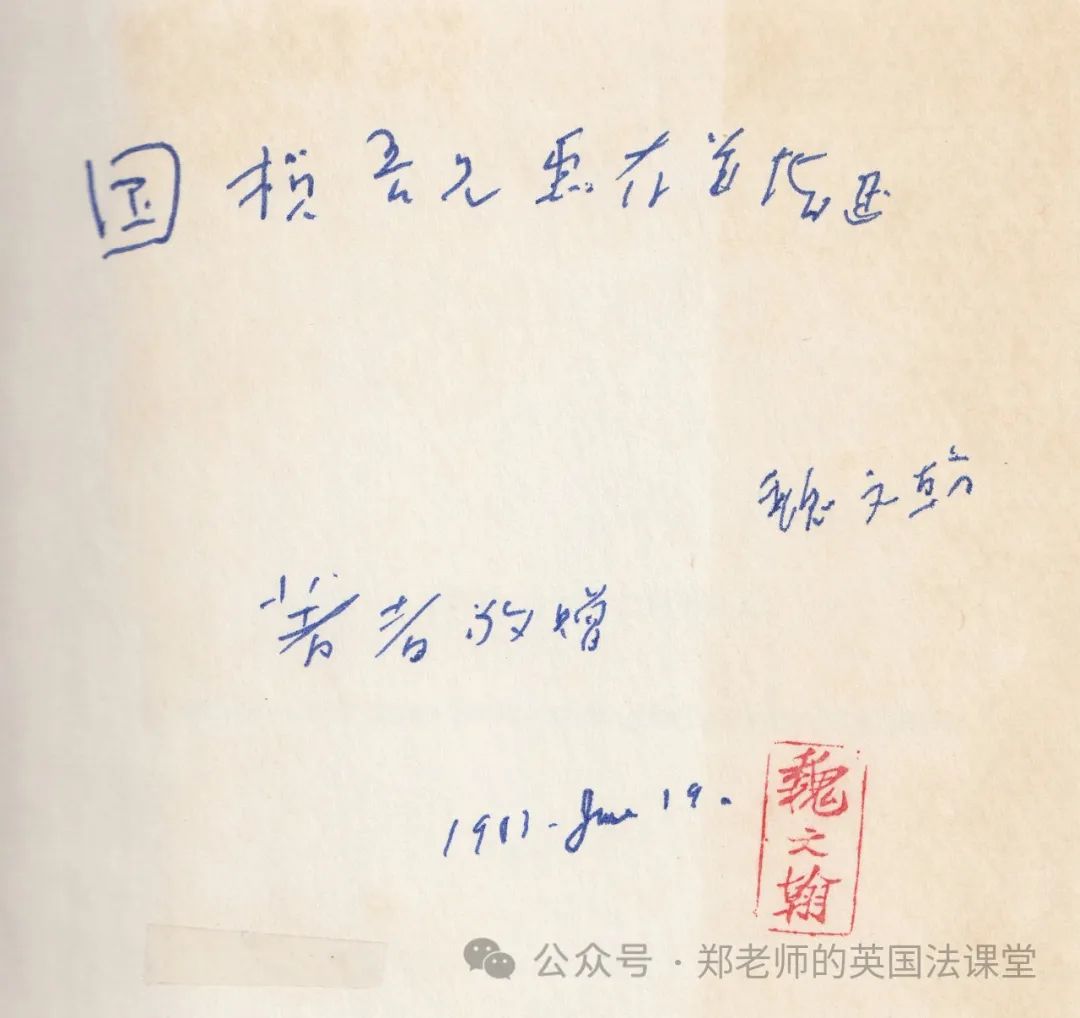 国桢吾兄惠存並指正
魏文翰
著者敬赠
June 19.
魏文翰
公众号·郑老师的英国法课堂